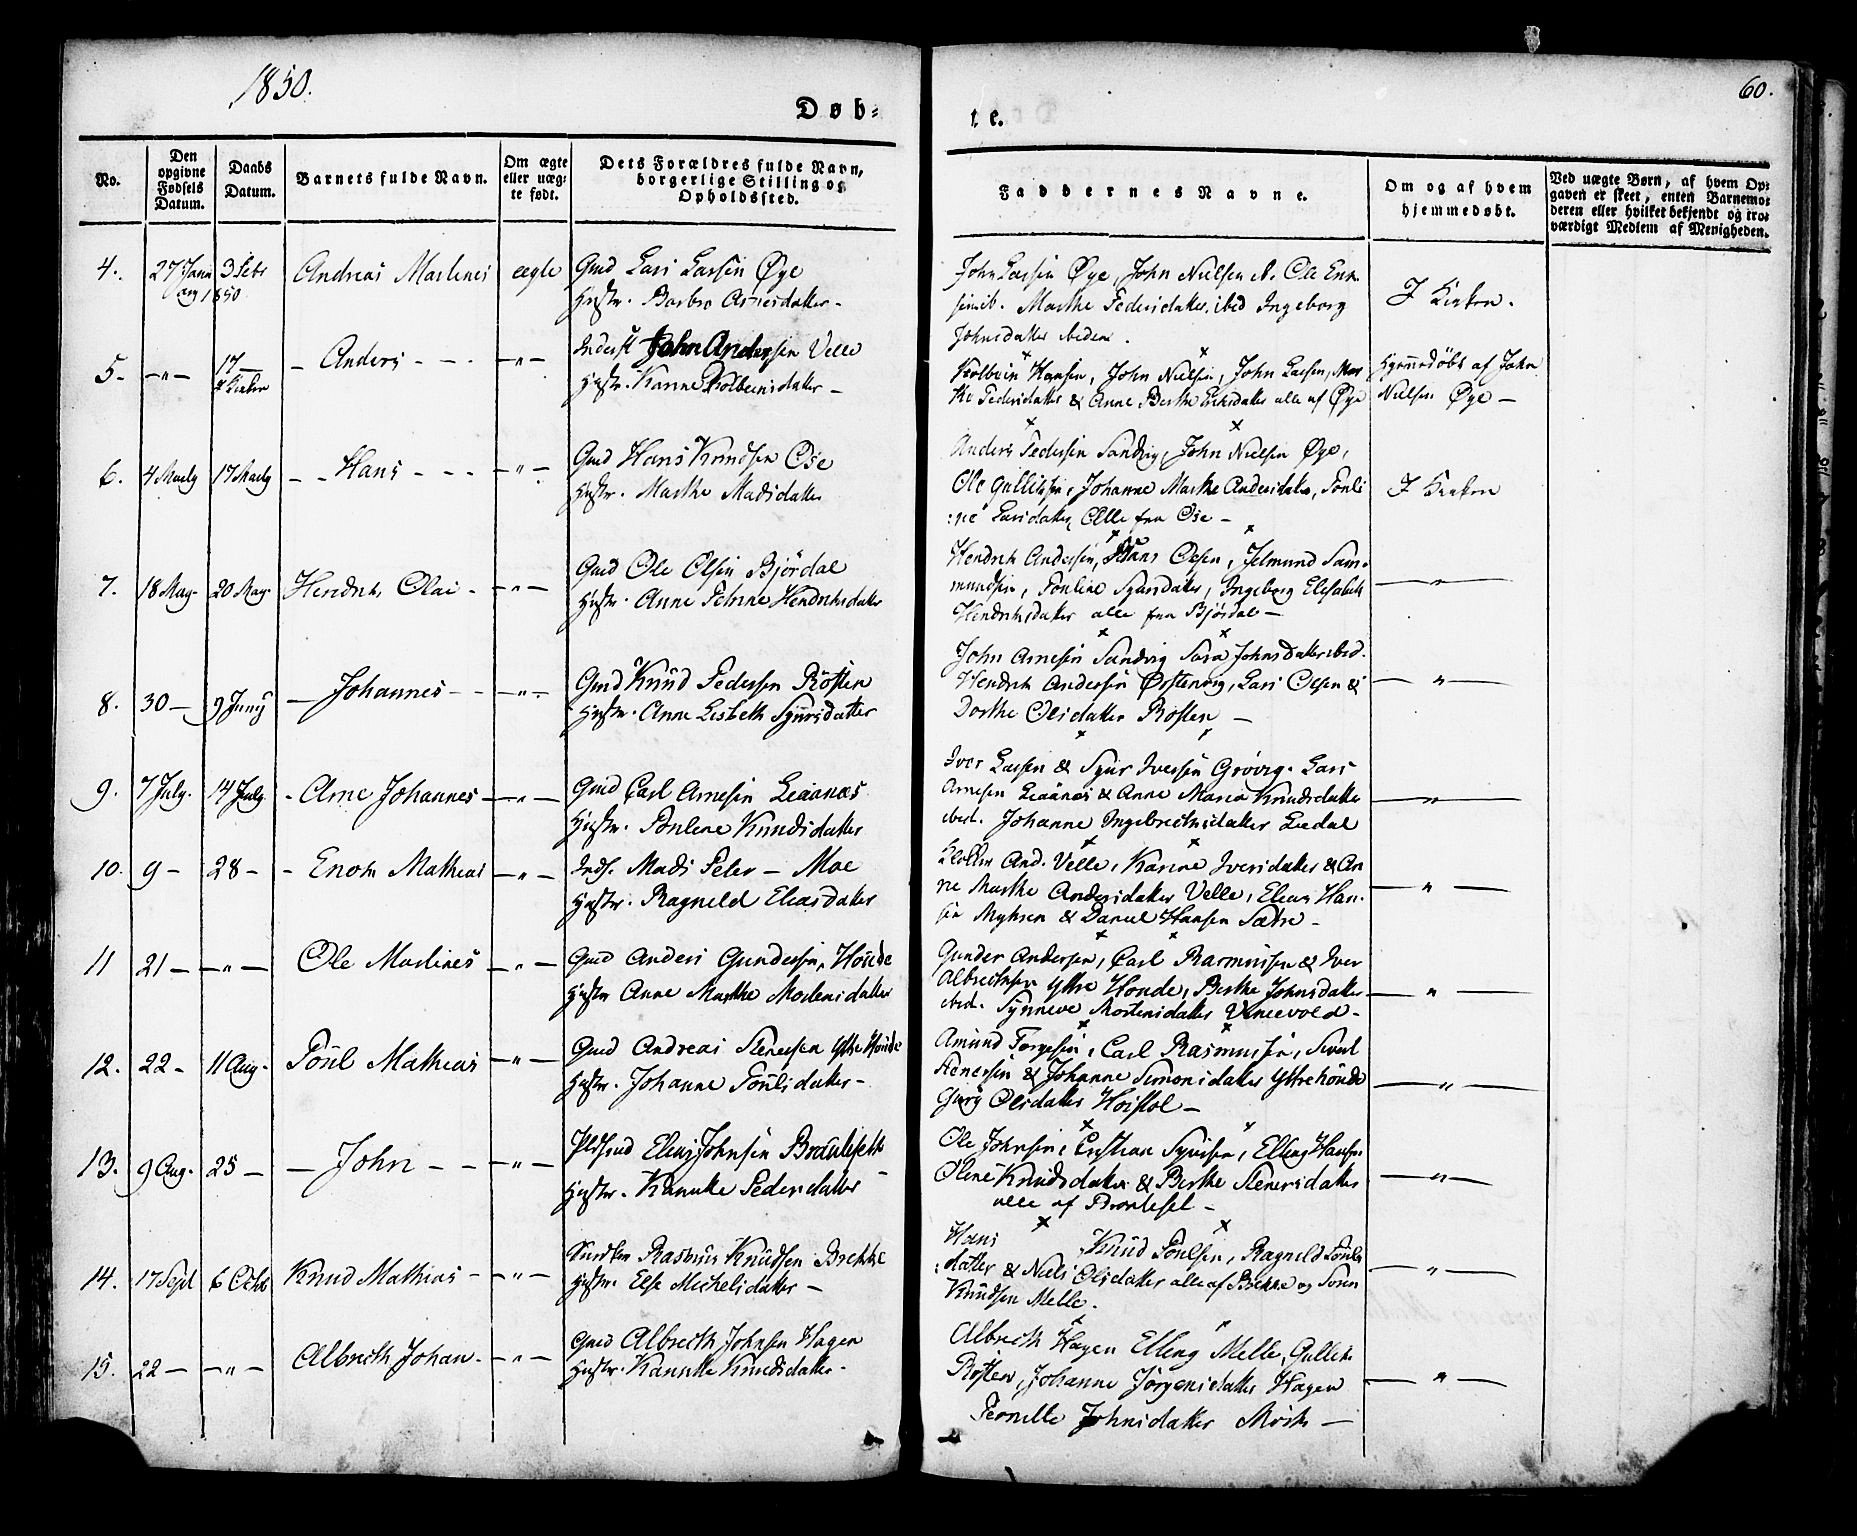 1850.
60.
Døb-
te.
No.
Den opgivne Fødsels Datum.
Daabs Datum.
Barnets fulde Navn.
Om ægte eller uægte født.
Dets Forældres fulde Navn, borgerlige Stilling og Opholdssted.
Faddernes Navne.
Om og af hvem hjemmedøbt.
Ved uægte Børn, af hvem Opgaven er skeet, enten Barnemoderen eller hvilket bekjendt og troværdigt Medlem af Menigheden.
4. 27 Janu 3 Febr Andreas Martines ægte Gmd Lars Larsen Øye
1850 Hustr. Barbro Arnesdatter -
John Larsen Øye, John Nielsen
Marthe Pedersdatter ibid Ingeborg
Johnsdatter ibidem.
I Kirken.
5. -"- 17 - Anders - - - -"- Inderst John Andersen Velle
I Kirken Hustr. Karine Kolbeensdatter -
Kolbein Hansen, John Nielsen, John Larsen, Mar
the Pedersdatter & Anne Berthe Eriksdatter alle af Øye
Hjemmedøbt af John
Nielsen Øye -
6. 4 Marty 17 Marty - - Hans - - - -"- Gmd Hans Knudsen Ose
Hustr. Marthe Madsdatter
Anders Pedersen Sandvig, John Nielsen Øye,
Ole Gulliksen, Johanne Marthe Andersdatter, Pouli
:ne Larsdatter, Alle fra Ose -
I Kirken
7. 18 May 20 May Hendrik Olai - -"- Gmd Ole Olsen Bjørdal
Hustr. Anne Petrine Hendriksdatter
Hendrik Andersen, Hans Olsen, Jetmund Sam-
mundsen, Pouline Syversdatter, Ingeborg Elisabeth
Hendriksdatter alle fra Bjørdal -
-"-
8. 30 - 9 Juny - Johannes - - -"- Gmd Knud Pedersen Røsten
Hustr. Anne Lisbeth Syversdatter
John Arnesen Sandvig Sara Johnsdatter ibid.
Hendrik Andersen Ørstenvig, Lars Olsen &
Dorthe Olsdatter Røsten -
-"-
9. 7 July. 14 July - Arne Johannes -"- Gmd Carl Arnesen Liaanæs
Hustr. Poulene Knudsdatter
Iver Larsen & Syver Iversen Grøvig. Lars
Arnesen Liaanæs & Anne Maria Knudsdatter
ibid. Johanne Ingebrechtsdatter Liedal
-"-
10. 9 - 28 - - Enok Mathias -"- Inds. Mads Peter - Moe
Hustr. Ragneld Eliasdatter
Klokker And. Velle, Karine Iversdatter & An
ne Marthe Andersdatter Velle, Elias Han-
sen Myhren & Daniel Hansen Sætre -
-"-
11 21 - -"- Ole Martines -"- Gmd Anders Gundersen, Houde
Hustr Anne Marthe Mortensdatter
Gunder Andersen, Carl Rasmussen & Iver
Albrechtsen Ytre Houde, Berthe Johnsdatter
ibid. Synneve Mortensdatter Vinievold -
-"-
12. 22 - 11 Aug. Poul Mathias -"- Gmd Andreas Stenersen Ytre Houde
Hustr. Johanne Poulsdatter -
Amund Torgersen, Carl Rasmussen, Sivert
Stenersen & Johanne Simonsdatter Ytrehoude
Gurg Olsdatter Hoistol -
-"-
13. 9 Aug. 25 - - John - - -"- Elias Johnsen Brautesett
Hustr. Kanutte Pedersdatter -
Ole Johnsen, Cristian Syversen, Elling Hansen
Oline Knudsdatter & Berthe Stenersdatter
alle af Brautesæt -
-"-
14. 17 Sept 6 Octb Knud Mathias - -"- Rasmus Knudsen Brekke
Hustr. Else Michelsdatter -
Hans Knud Poulsen, Ragneld Pouls
:datter & Niels Olsdatter alle af Brekke og Søren
Knudsen Melle.
-"-
15. 22 - -"- Albrecth Johan - -"- Gmd Albrecth Johnsen Hagen
Hustr. Kanutte Knudsdatter -
Albrecth Hagen Elling Melle, Gullik
Røsten, Johanne Jørgensdatter Hagen
Pernille Johnsdatter Mork -
-"-